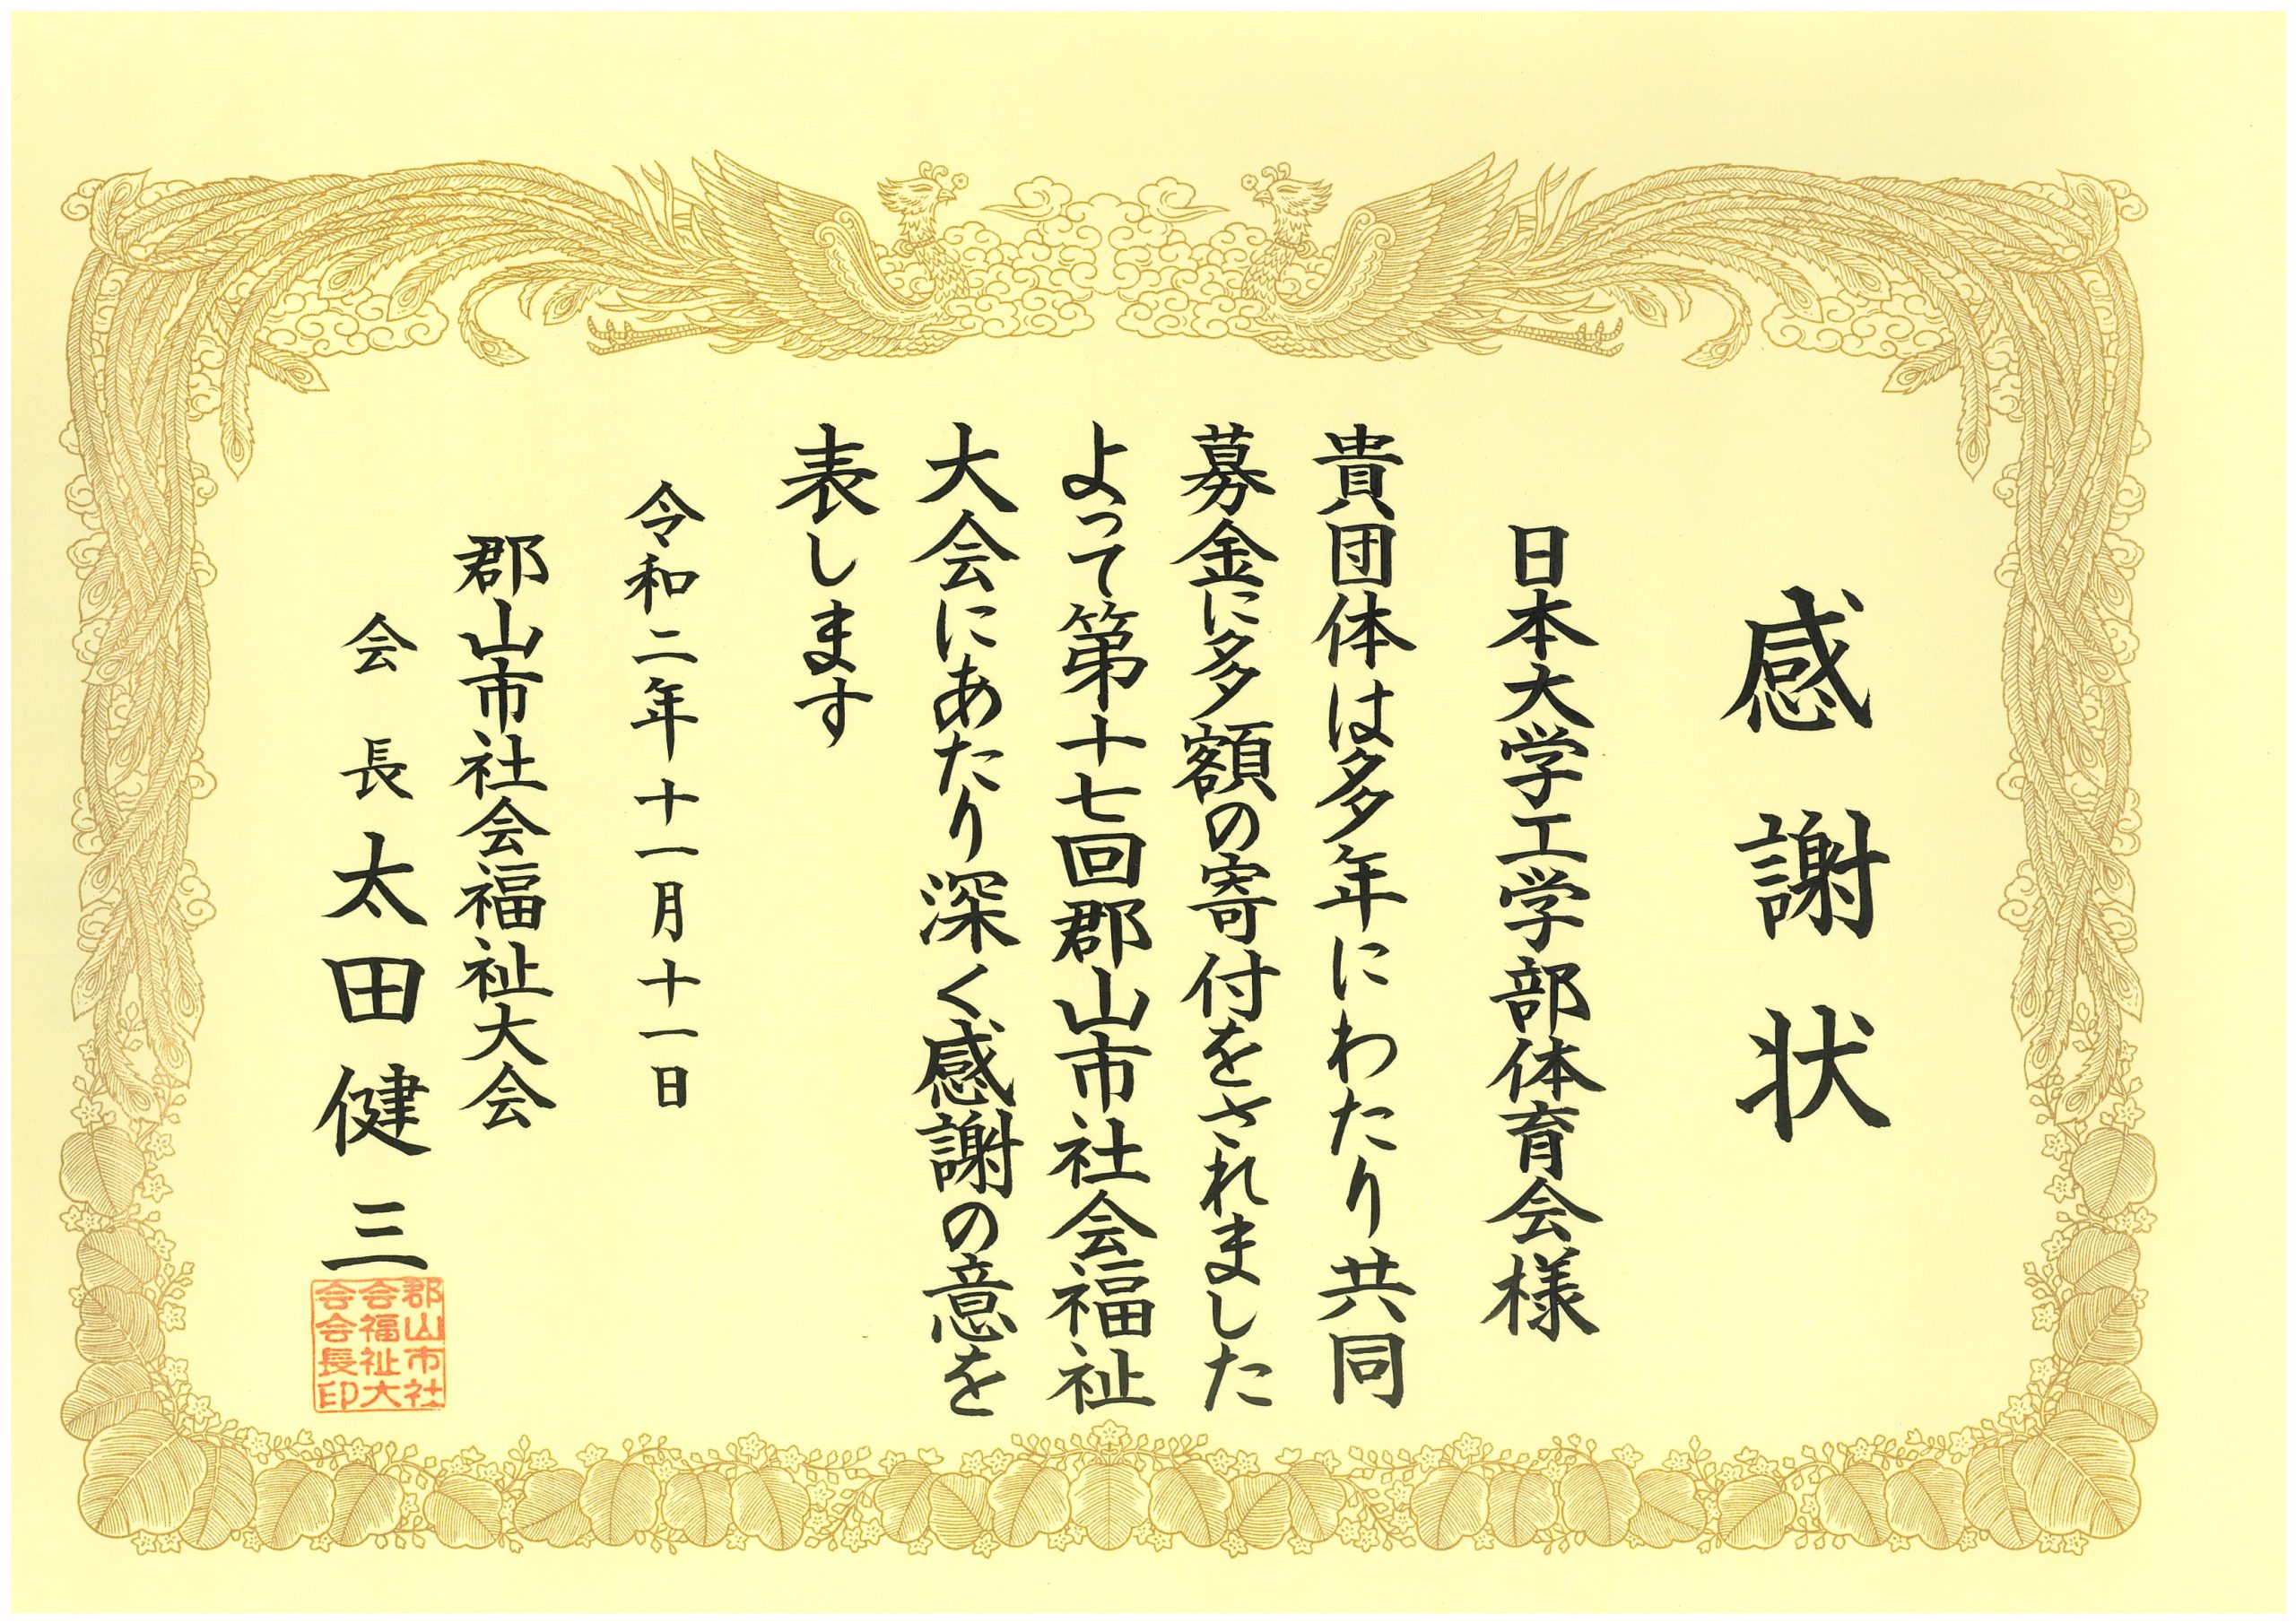 感謝状
日本大学工学部体育会様
貴団体は多年にわたり共同
募金に多額の寄付をされました
よって第十七回郡山市社会福祉
大会にあたり深く感謝の意を
表します
令和二年十一月十一日
郡山市社会福祉大会
会長太田健三
郡山市社
会福祉大
会会長印